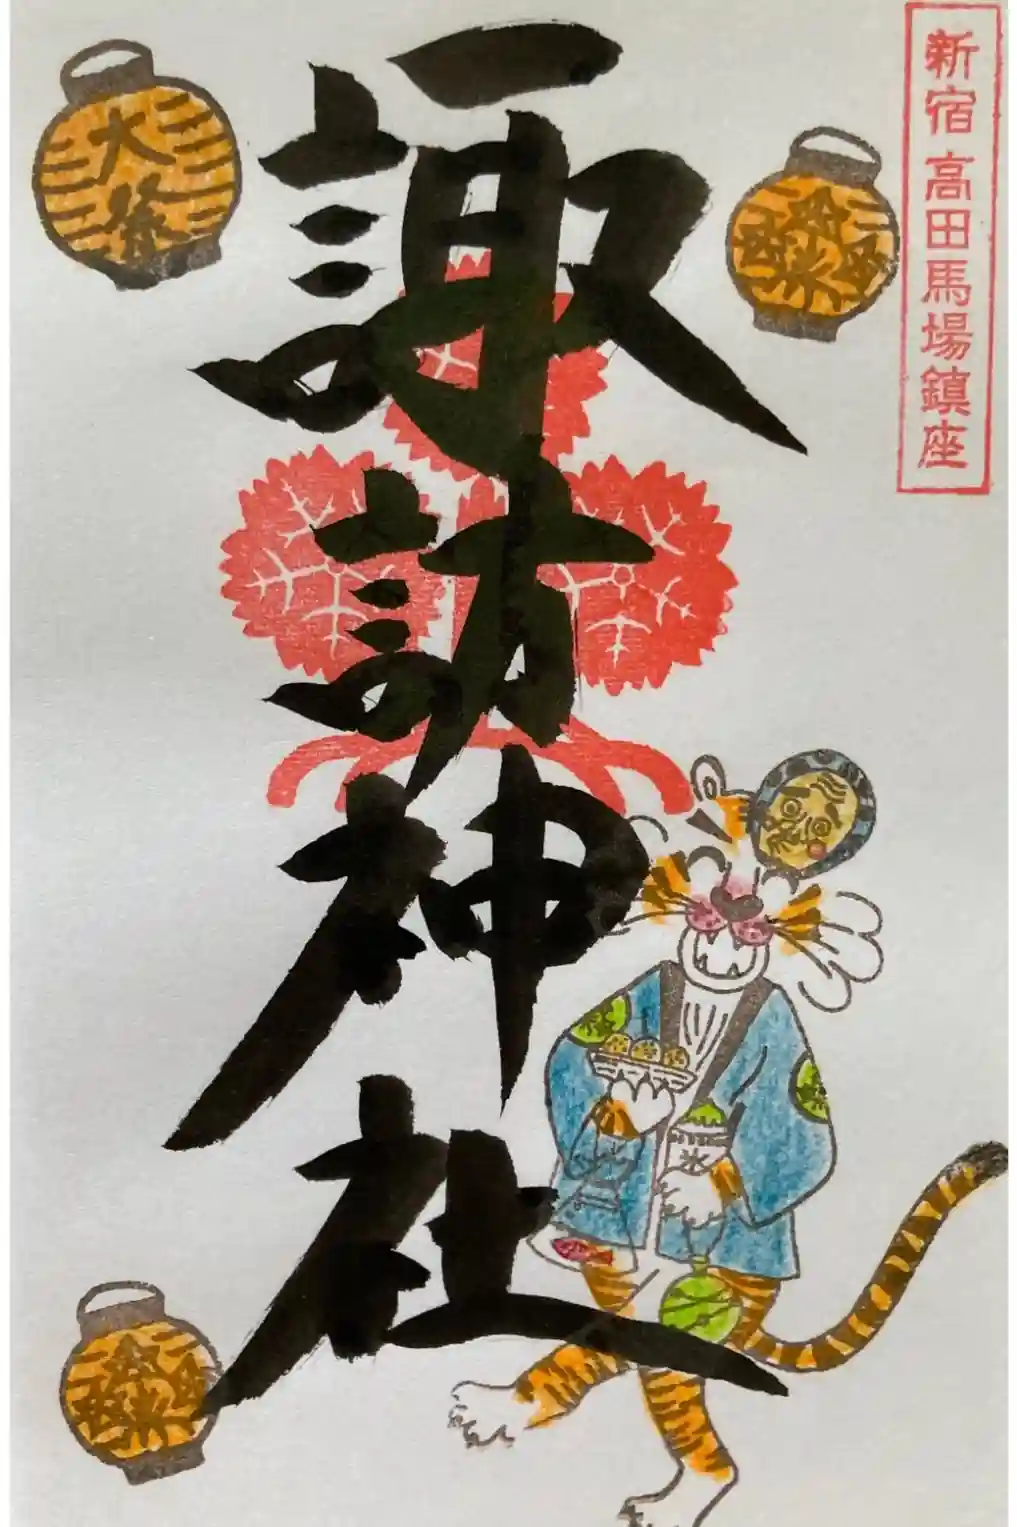 新宿高田馬場鎮座
諏訪神社
大祭
氷